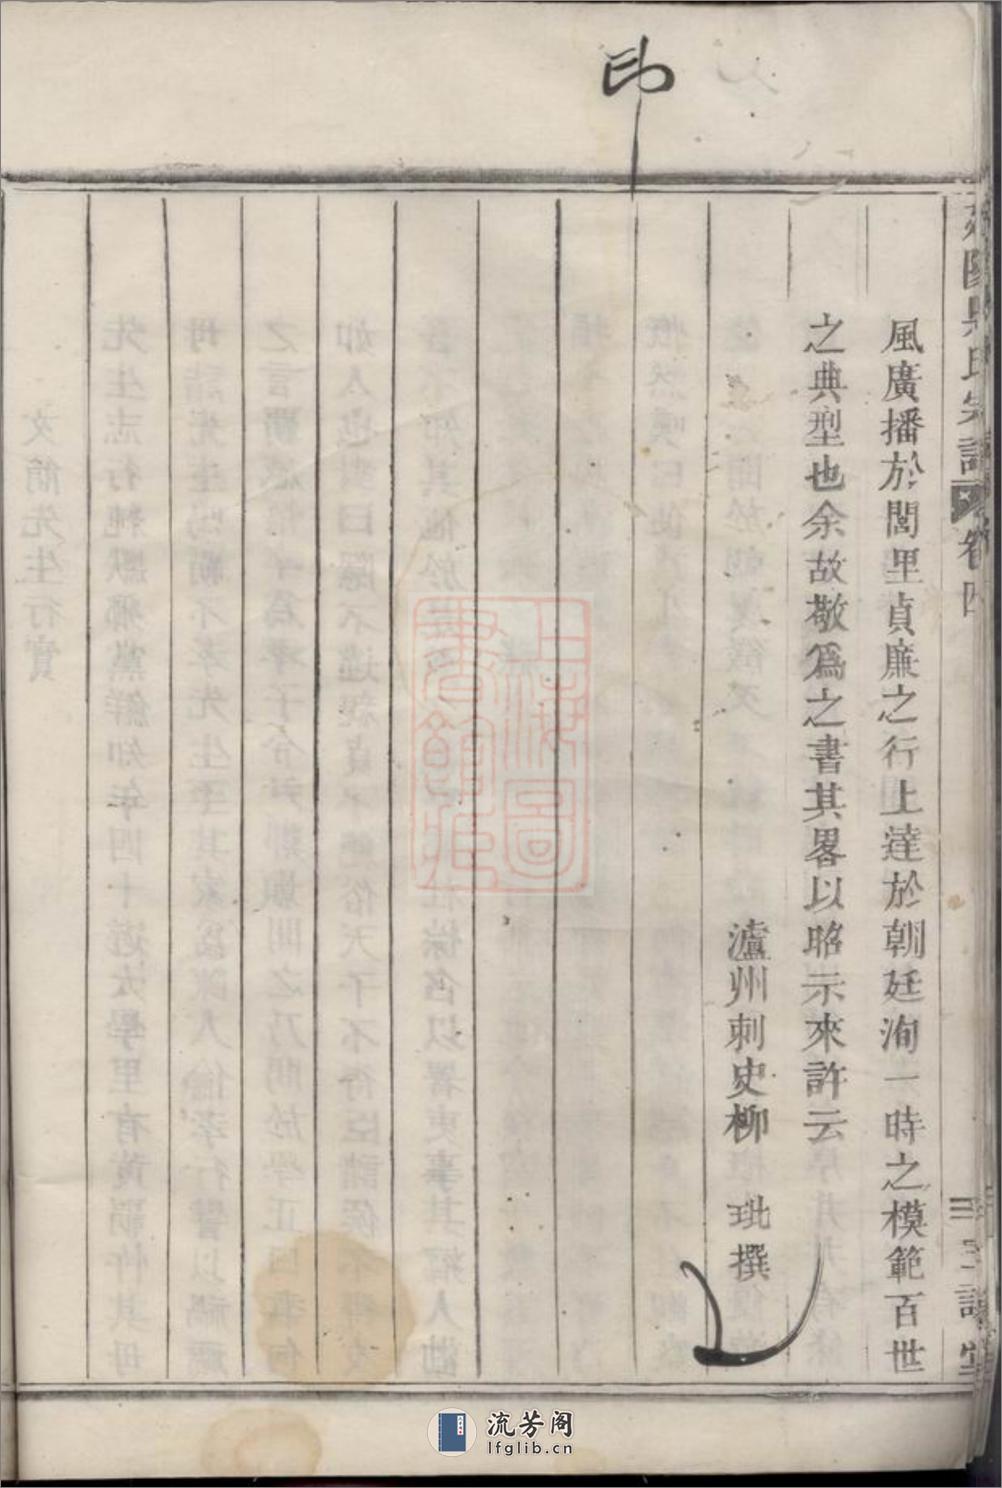 印
風廣播於閭里貞廉之行上達於朝廷洵一時之模範百世
之典型也余故敬爲之書其畧以昭示來許云
瀘州刺史柳 玭撰
吳氏宗譜
卷四
流芳阁
lfglib.cn